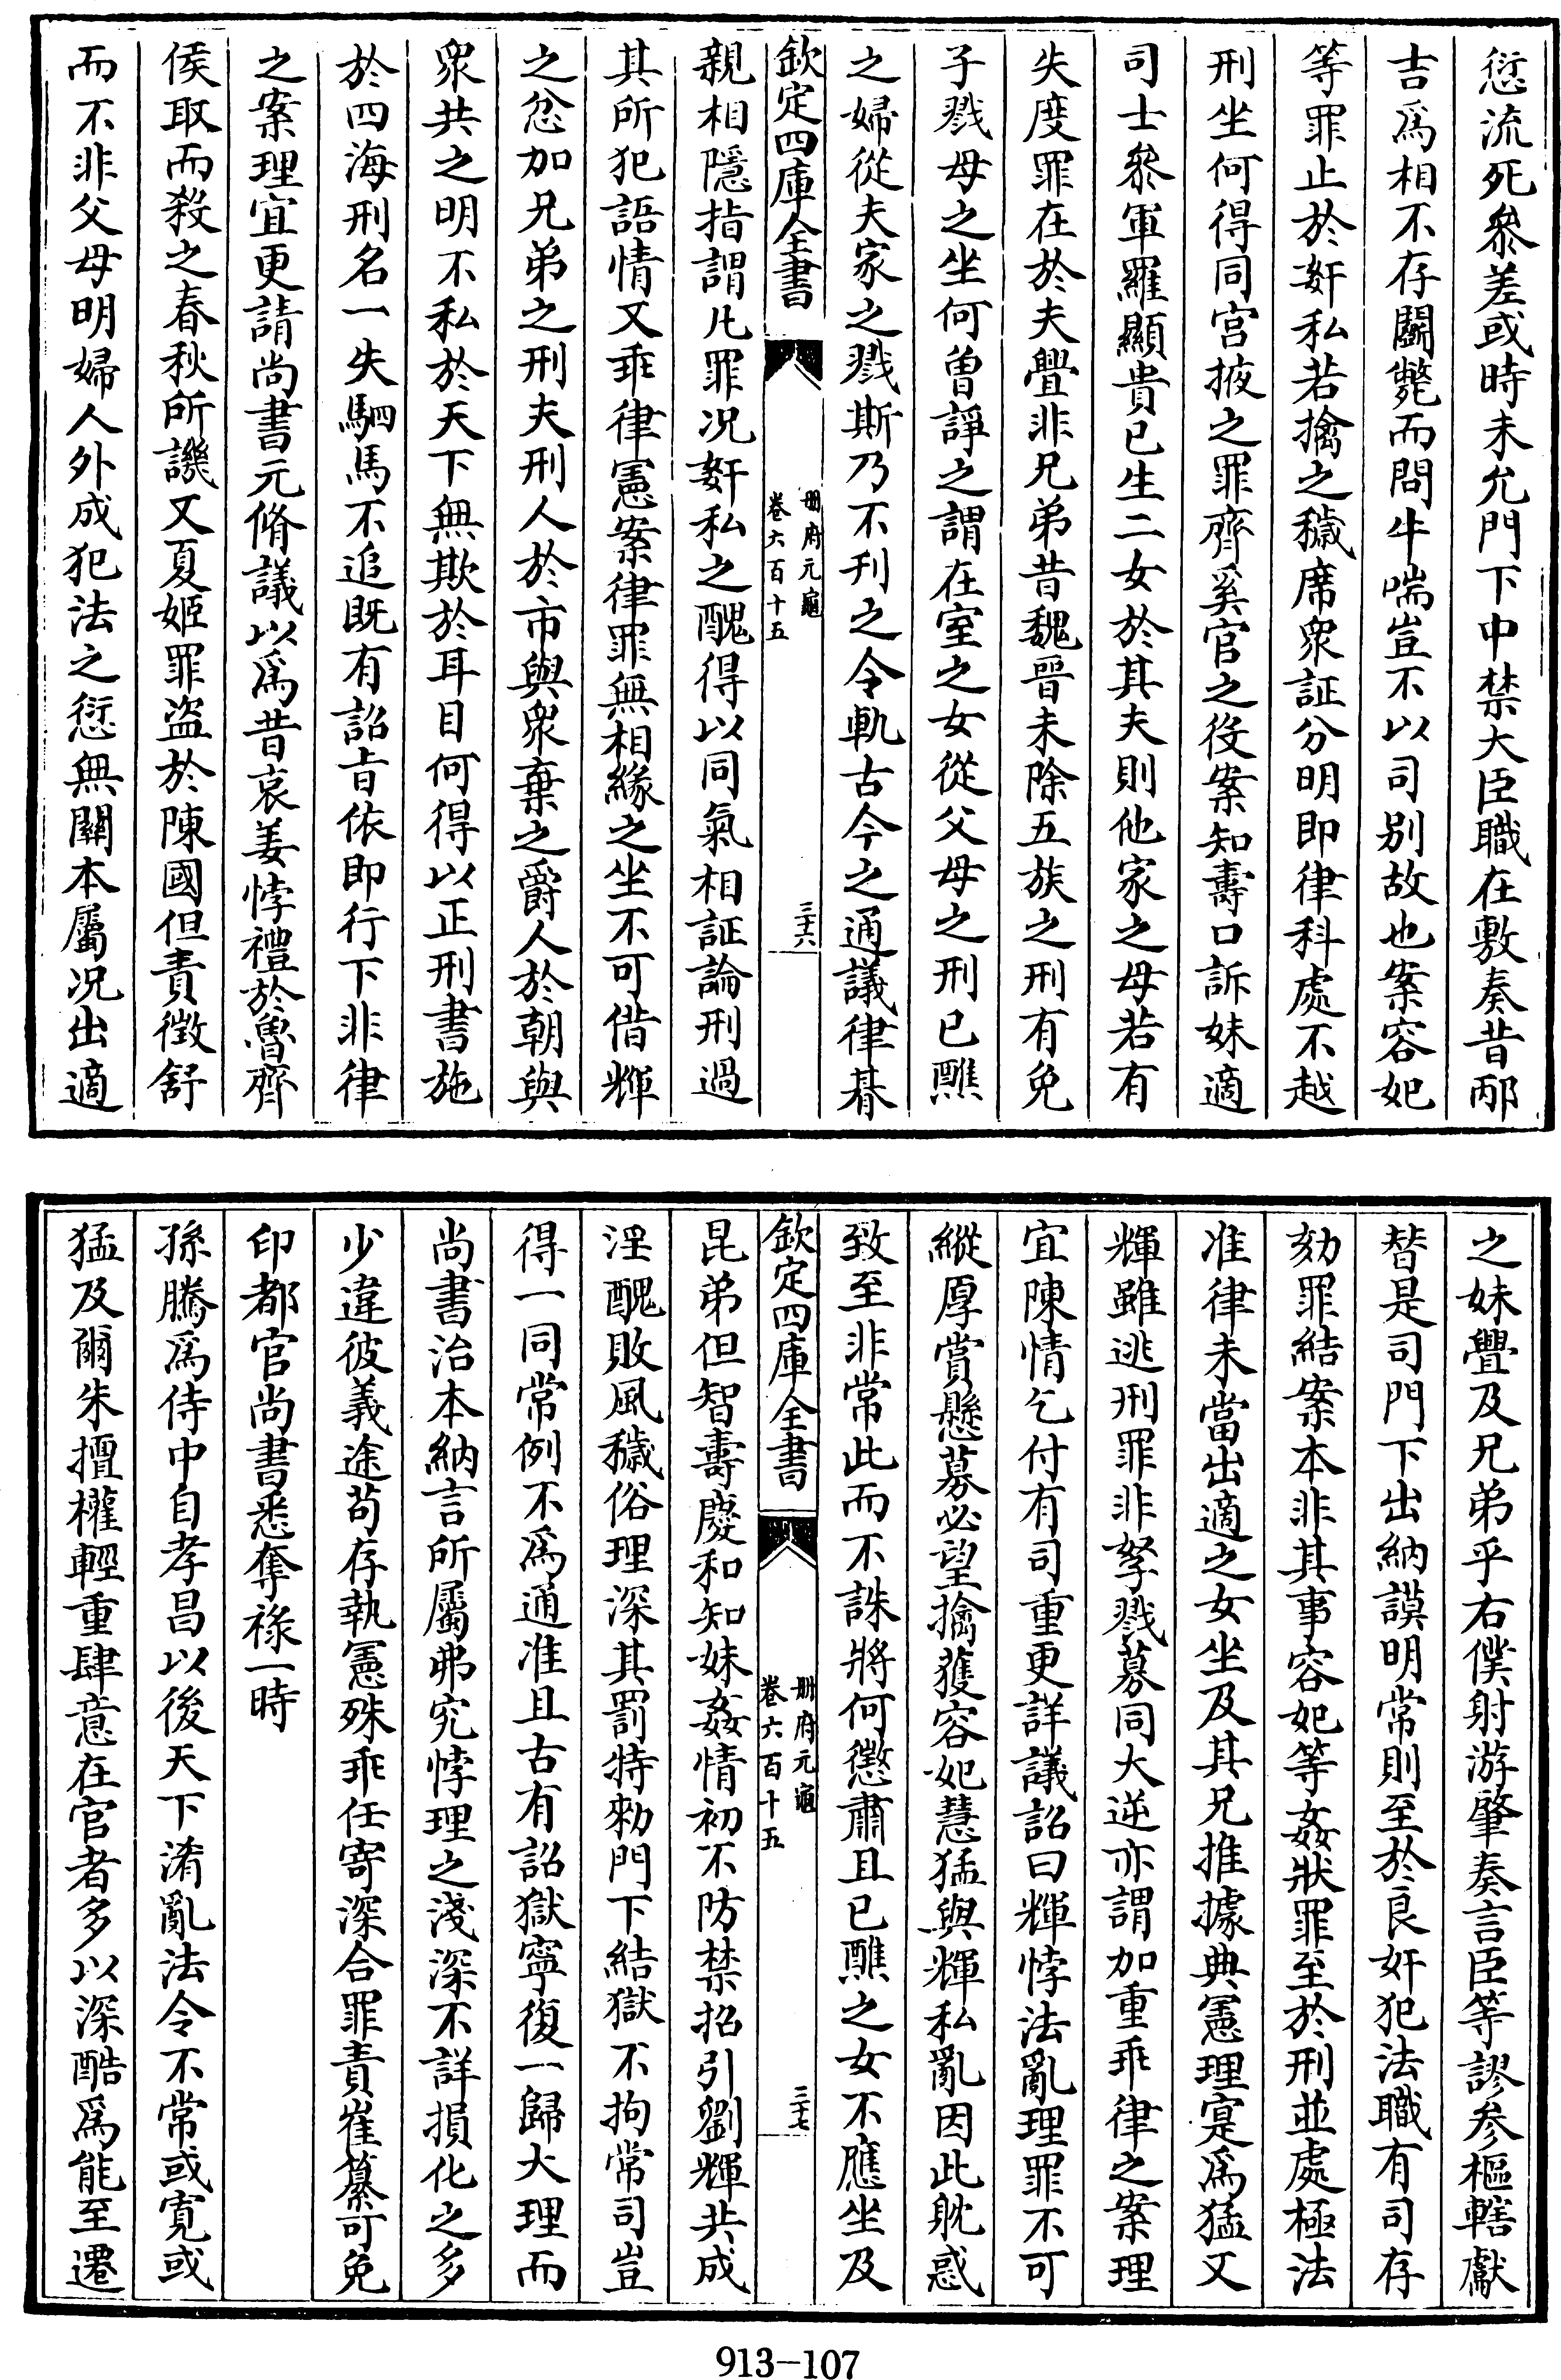 愆流死參差或時未允門下中禁大臣職在敷奏昔邴
吉爲相不存鬭斃而問牛喘豈不以司别故也案容妃
等罪止於奸私若擒之穢席衆証分明即律科處不越
刑坐何得同宫掖之罪齊奚官之役案知壽口訴妹適
司士參軍羅顯貴已生二女於其夫則他家之母若有
失度罪在於夫舋非兄弟昔魏晉未除五族之刑有免
子戮母之坐何曽諍之謂在室之女從父母之刑已醮
之婦從夫家之戮斯乃不刋之令軌古今之通議律朞
欽定四庫全書
册府元龜
卷六百十五
三十六
親相隱指謂凡罪况奸私之醜得以同氣相証論刑過
其所犯語情又乖律憲案律罪無相緣之坐不可借輝
之忿加兄弟之刑夫刑人於市與衆棄之爵人於朝與
衆共之明不私於天下無欺於耳目何得以正刑書施
於四海刑名一失駟馬不追既有詔㫖依即行下非律
之案理宜更請尚書元脩議以爲昔哀姜悖禮於魯齊
侯取而殺之春秋所譏又夏姬罪盜於陳國但責徵舒
而不非父母明婦人外成犯法之愆無關本屬况出適
之妹舋及兄弟乎右僕射游肇奏言臣等謬參樞轄獻
替是司門下出納謨明常則至於良奸犯法職有司存
劾罪結案本非其事容妃等姦狀罪至於刑並處極法
准律未當出適之女坐及其兄推據典憲理寔爲猛又
輝雖逃刑罪非孥戮募同大逆亦謂加重乖律之案理
宜陳情乞付有司重更詳議詔曰輝悖法亂理罪不可
縱厚賞懸募必望擒獲容妃慧猛與輝私亂因此躭惑
致至非常此而不誅將何懲肅且已醮之女不應坐及
欽定四庫全書
册府元龜
卷六百十五
三十七
昆弟但智壽慶和知妹姦情初不防禁招引劉輝共成
淫醜敗風穢俗理深其罰特勑門下結獄不拘常司豈
得一同常例不爲通准且古有詔獄寧復一歸大理而
尚書治本納言所屬弗究悖理之淺深不詳損化之多
少違彼義途苟存執憲殊乖任寄深合罪責崔纂可免
印都官尚書悉奪祿一時
孫騰爲侍中自孝昌以後天下淆亂法令不常或寛或
猛及爾朱擅權輕重肆意在官者多以深酷爲能至遷
913-107